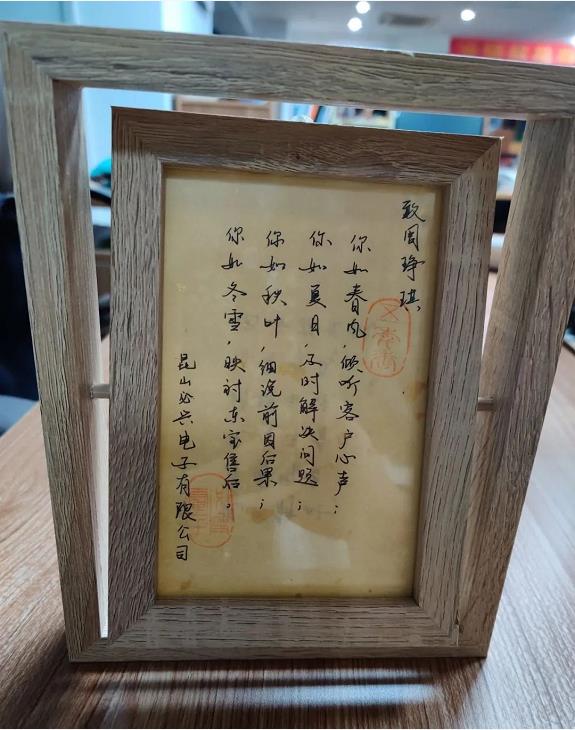 致周琤琪
你如春风，倾听客户心声；
你如夏日，及时解决问题；
你如秋叶，细说前因后果；
你如冬雪，映衬东宝售后。
昆山必兴电子有限公司